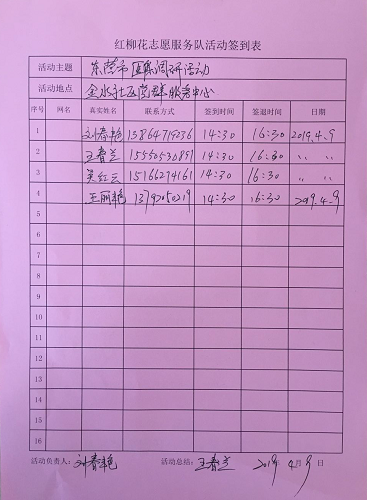 红柳花志愿服务队活动签到表
活动主题 东营市 调研活动
活动地点 金水社区党群服务中心
序号 网名 真实姓名 联系方式 签到时间 签退时间 日期
1 刘春艳 13864719236 14:30 16:30 2019.4.9
2 王春兰 15550530851 14:30 16:30 〃 〃
3 吴红云 15166214161 14:30 16:30 〃 〃
4 王丽艳 14:30 16:30 2019.4.9
5
6
7
8
9
10
11
12
13
14
15
16
活动负责人: 刘春艳 活动总结: 王春兰 2019年4月9日